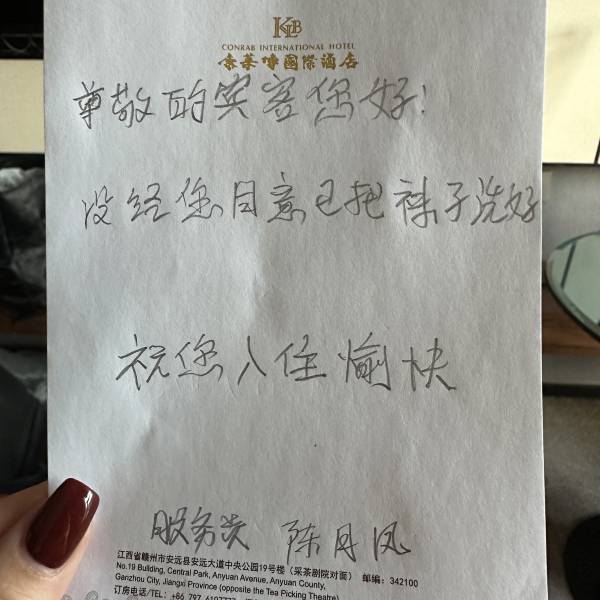 KLB
CONRAB INTERNATIONAL HOTEL
康莱博國際酒店
尊敬的宾客您好!
没经您同意已把袜子洗好
祝您入住愉快
服务员 陈月凤
江西省赣州市安远县安远大道中央公园19号楼(采茶剧院对面) 邮编:342100
No.19 Building, Central Park, Anyuan Avenue, Anyuan County,
Ganzhou City, Jiangxi Province (opposite the Tea Picking Theatre)
订房电话/TEL: +86 797